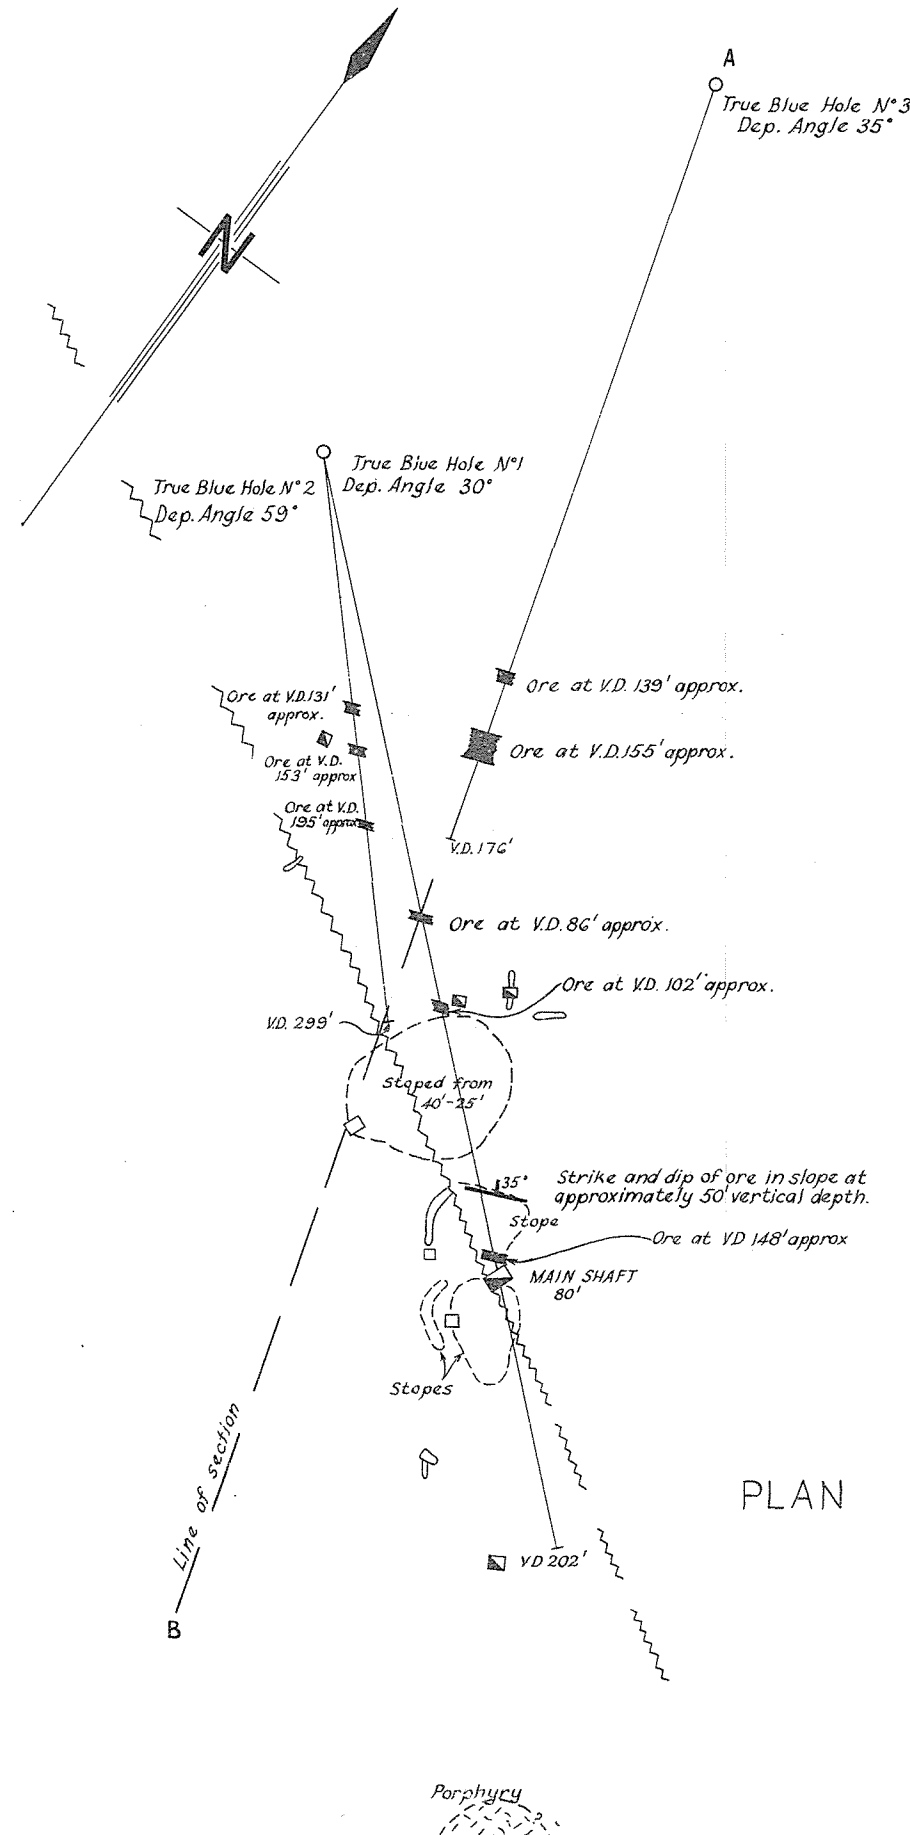 A
True Blue Hole N°3
Dep. Angle 35°
N
True Blue Hole N°1
Dep. Angle 30°
True Blue Hole N°2
Dep. Angle 59°
Ore at V.D. 139' approx.
Ore at V.D. 131'
approx.
Ore at V.D. 155' approx.
Ore at V.D.
153' approx
Ore at V.D.
195' approx
V.D. 176'
Ore at V.D. 86' approx.
Ore at V.D. 102' approx.
V.D. 299'
Stoped from
40'-25'
35°
Strike and dip of ore in slope at
approximately 50' vertical depth.
Stope
Ore at VD 148' approx
MAIN SHAFT
80'
Stopes
Line of section
PLAN
V.D 202'
B
Porphyry
?